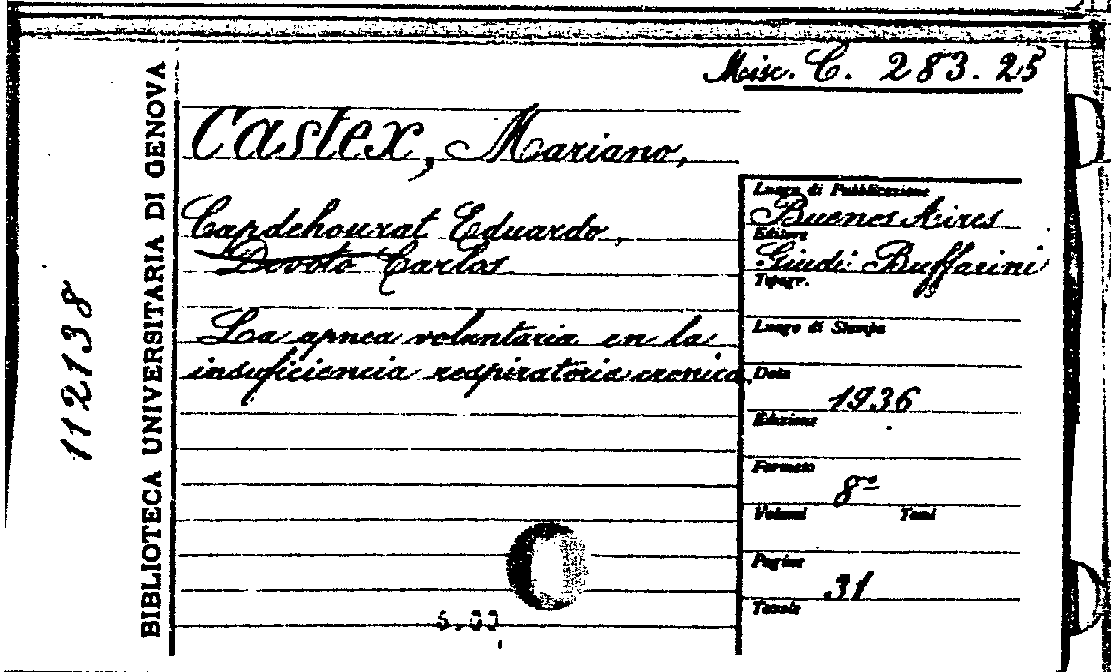 Misc. C. 283.25
Castex, Mariano,
Capdehourat Eduardo,
Devoto Carlos
La apnea voluntaria en la
insuficiencia respiratoria cronica.
Luogo di Pubblicazione
Buenos Aires
Editore
Giudi Buffarini
Tipogr.
Luogo di Stampa
Data
1936
Edizione
Formato
8º
Volumi Tomi
Pagine
31
Tavole
BIBLIOTECA UNIVERSITARIA DI GENOVA
112138